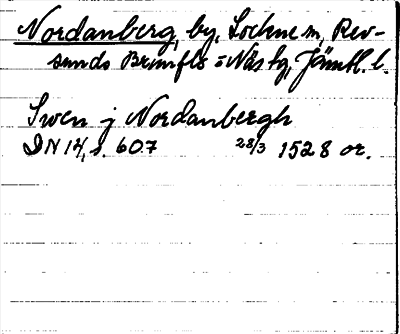 Nordanberg, by, Lockne sn, Rev-
sunds Brunflo o Näs tg, Jämtl. l.
Swen j Nordanbergh
DN 14, s. 607 28/3 1528 or.